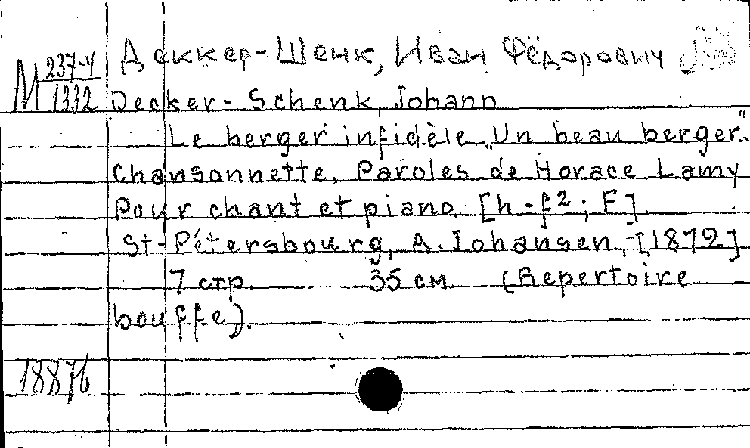 Деккер-Шенк, Иван Фёдорович
М 237-4/1332
Decker-Schenk Johann
Le berger infidèle „Un beau berger"
Chansonnette. Paroles de Horace Lamy
Pour chant et piano. [h-f²; F]
St-Pétersbourg, A. Johansen, [1872]
7 стр. 35 см (Repertoire
bouffe).